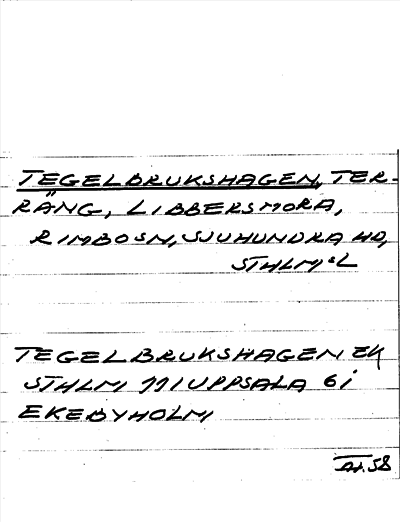 TEGELBRUKSHAGEN, TER-
RÄNG, LIBBERSMORA,
RIMBO SN, SJUHUNDRA HD,
STHLMS L
TEGELBRUKSHAGEN EK
STHLM 111 UPPSALA 6 i
EKEBYHOLM
58